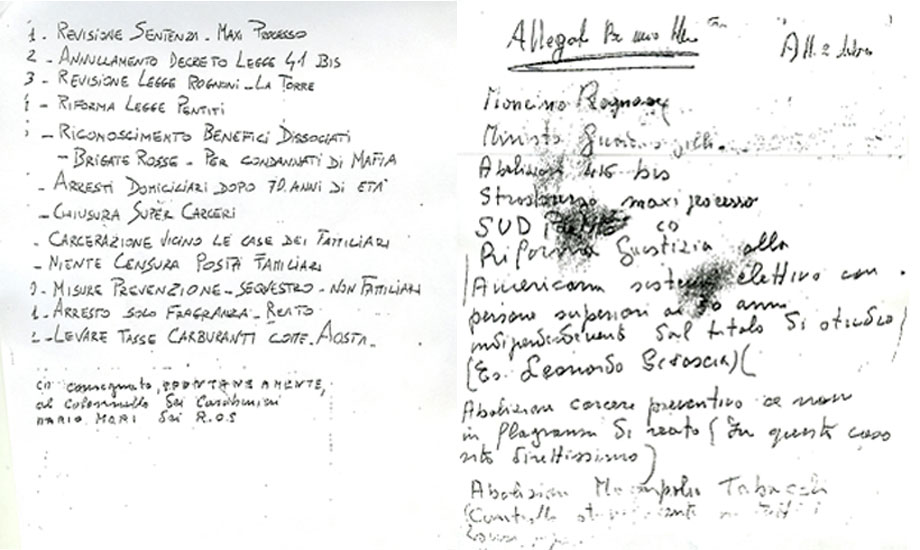 1. REVISIONE SENTENZA - MAXI PROCESSO
2 - ANNULLAMENTO DECRETO LEGGE 41 BIS
3 - REVISIONE LEGGE ROGNONI - LA TORRE
- RIFORMA LEGGE PENTITI
- RICONOSCIMENTO BENEFICI DISSOCIATI
- BRIGATE ROSSE - PER CONDANNATI DI MAFIA
- ARRESTI DOMICILIARI DOPO 70 ANNI DI ETA'
- CHIUSURA SUPER CARCERI
- CARCERAZIONE VICINO LE CASE DEI FAMILIARI
- NIENTE CENSURA POSTA FAMILIARI
- MISURE PREVENZIONE - SEQUESTRO - NON FAMILIARI
- ARRESTO SOLO FRAGRANZA - REATO
- LEVARE TASSE CARBURANTI COME AOSTA
consegnato, SPONTANEAMENTE,
al colonnello dei Carabinieri
MARIO MORI dei R.O.S
Mancino
Ministro
Abolizione bis
Strasburgo maxi processo
SUD
Riforma Giustizia alla
Americana sistema elettivo con
persone superiori ai 50 anni
indipendentemente dal titolo di studio
(Es. Leonardo Sciascia)
Abolizione carcere preventivo se non
in flagranza di reato (In questo caso
rito direttissimo)
Abolizione Monopolio Tabacchi